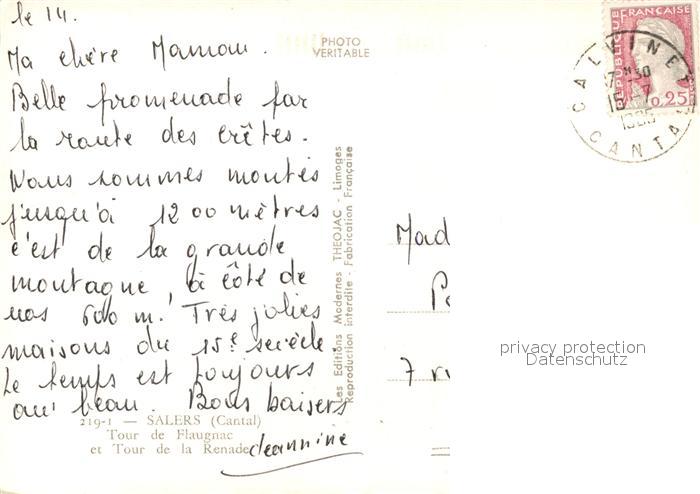 le 14.
Ma chère Maman.
Belle promenade par
la route des crêtes.
Nous sommes montés
jusqu'à 1200 mètres
c'est de la grande
montagne, à côté de
nos 600 m. Très jolies
maisons du 15e siècle
Le temps est toujours
au beau. Bons baisers
Jeannine
219-1 — SALERS (Cantal)
Tour de Flaugnac
et Tour de la Renade
PHOTO
VERITABLE
Les Editions Modernes THEOJAC - Limoges
Reproduction interdite - Fabrication Française
REPUBLIQUE FRANÇAISE
0,25
CALVINET
17H30
15-7
1965
CANTAL
Mad
7 ru
privacy protection
Datenschutz